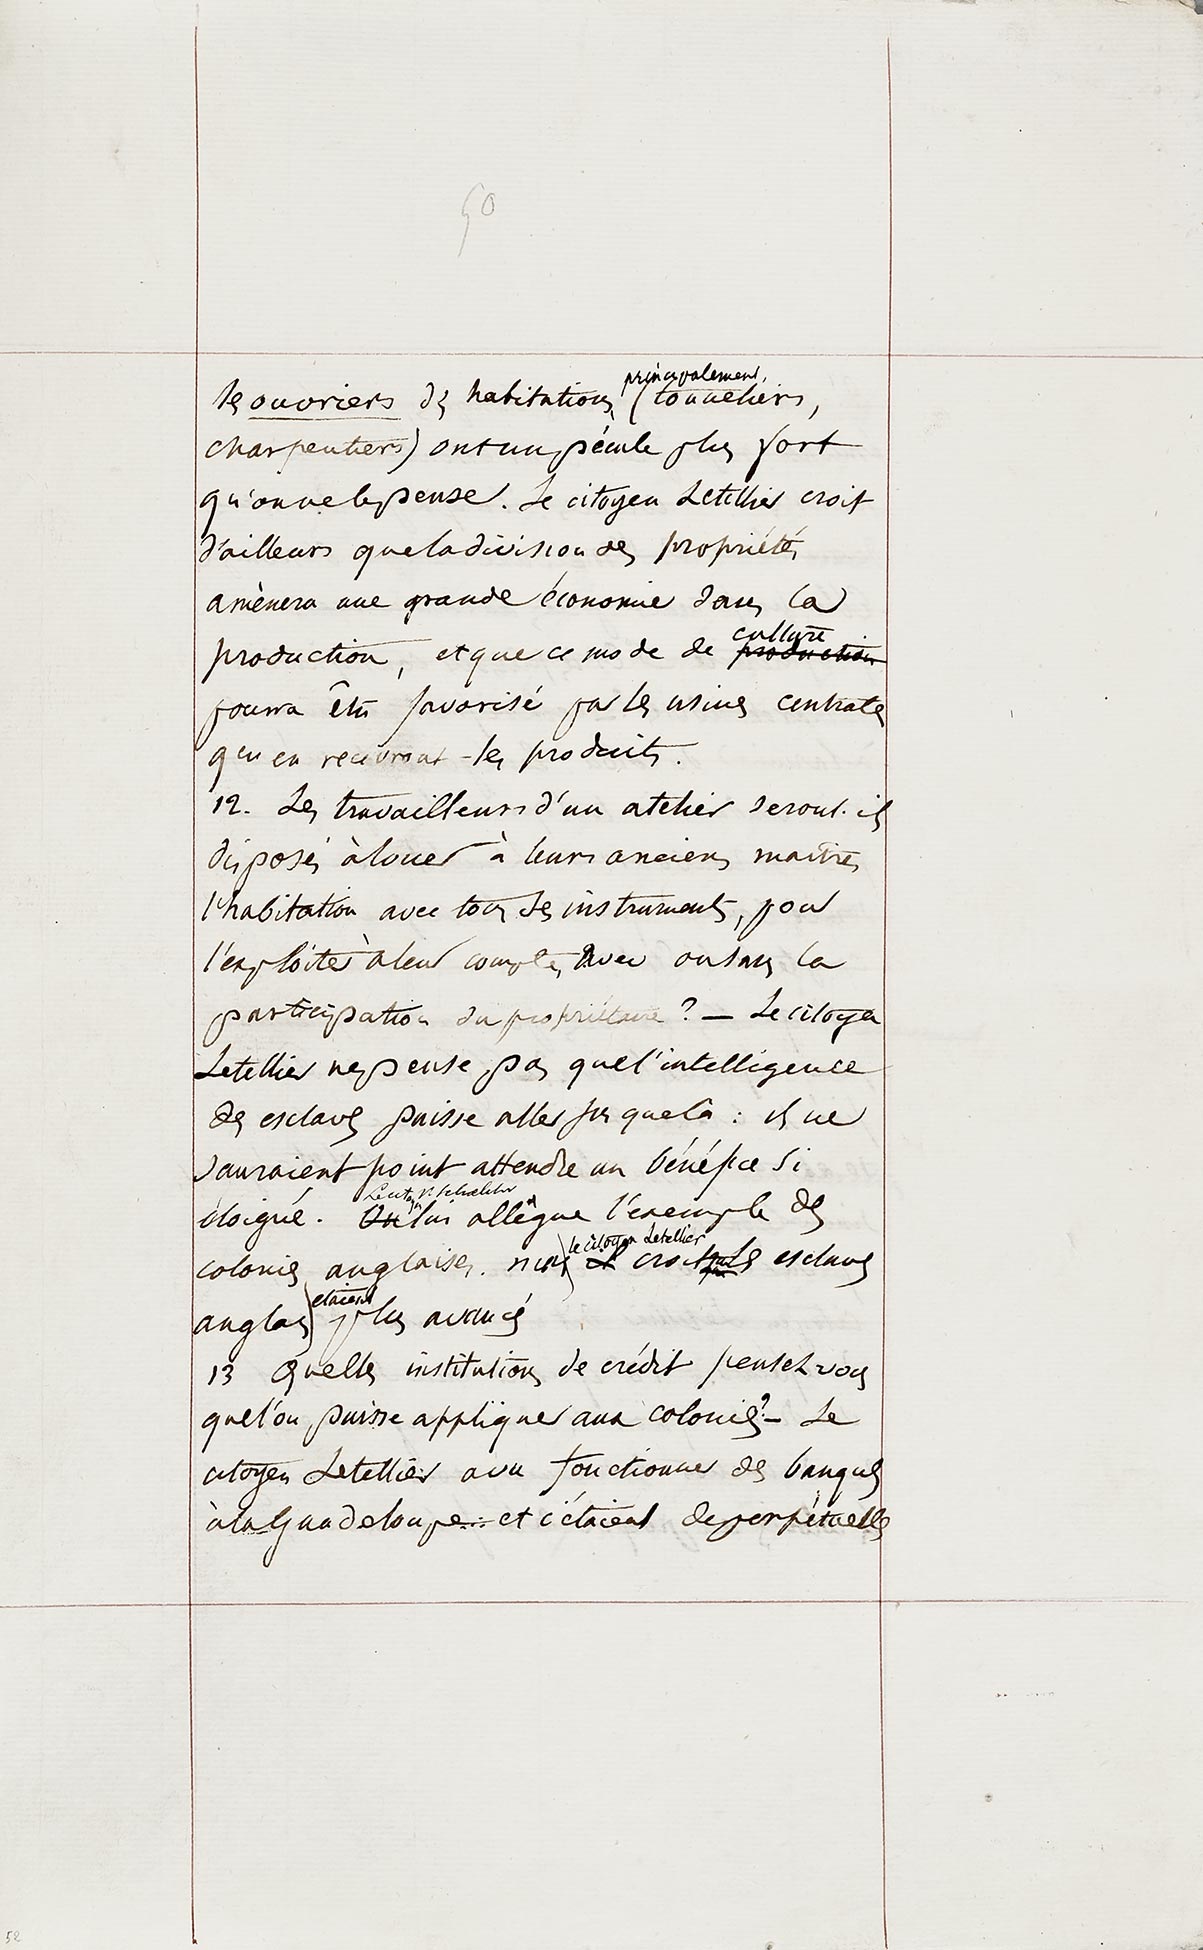 50
les ouvriers des habitations, (principalement, tonneliers,
charpentiers) ont un pécule plus fort
qu'on ne le pense. Le citoyen Letellier croit
d'ailleurs que la division des propriétés
amènera une grande économie dans la
production, et que ce mode de production culture
pourra être favorisé par les usines centrales
qui en recevront les produits.
12. Les travailleurs d'un atelier seront-ils
disposés à louer à leurs anciens maîtres
l'habitation avec tous ses instruments, pour
l'exploiter à leur compte, avec ou sans la
participation du propriétaire ? — Le citoyen
Letellier ne pense pas que l'intelligence
des esclaves puisse aller jusque là : ils ne
sauraient point attendre un bénéfice si
éloigné. On Le citoyen V. Schœlcher lui allègue l'exemple des
colonies anglaises. mais il le citoyen Letellier croit que les esclaves
anglais étaient plus avancés
13 Quelles institutions de crédit pensez-vous
que l'on puisse appliquer aux colonies ? — Le
citoyen Letellier a vu fonctionner des banques
à la Guadeloupe et c'étaient de perpétuelles
52